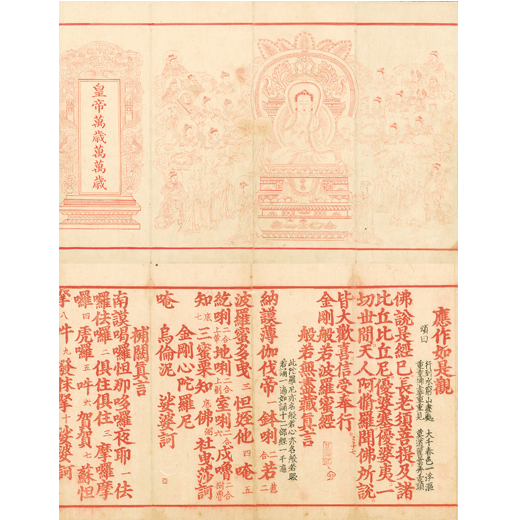 皇帝萬歲萬萬歲
應作如是觀
頌曰
佛說是經已長老須菩提及諸
比丘比丘尼優婆塞優婆夷一
切世間天人阿脩羅聞佛所說
皆大歡喜信受奉行
金剛般若波羅蜜經
般若無盡藏真言
納謨薄伽伐帝一鉢唎二合若二
波羅蜜多曳三怛姪他四唵五
知七三蜜栗知佛社曳莎訶
金剛心陀羅尼
唵烏倫泥娑婆訶
補闕真言
南謨喝囉怛那哆囉夜耶一佉
囉佉囉二俱住俱住三摩囉摩
囉四虎囉五吽六賀賀七蘇怛
拏八吽九發沫拏十娑婆訶